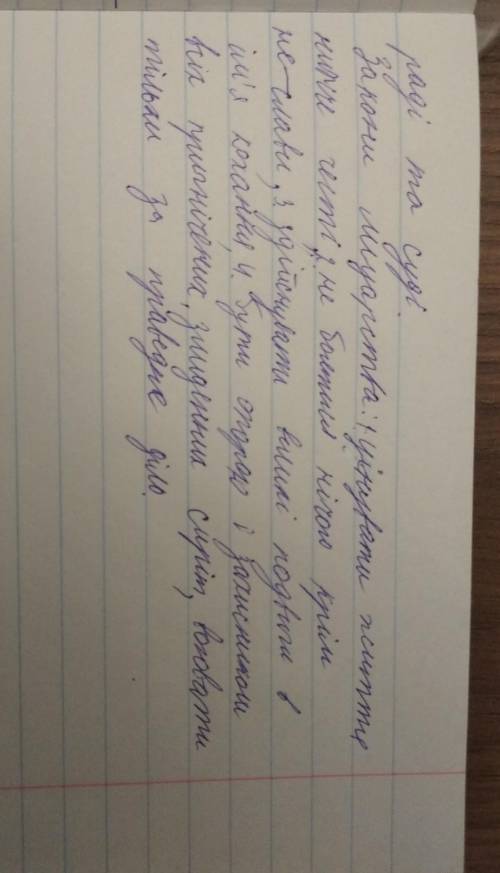 раді та суді
Закони лицарства: 1. цінувати життя
нижче честі, 2. не боятися нічого крім
не-слави, 3 здійснувати великі подвиги в
ім'я кохання, 4. бути опорою і захисником
вік пригнічених, знидених сиріт, воювати
тільки за праведне діло.